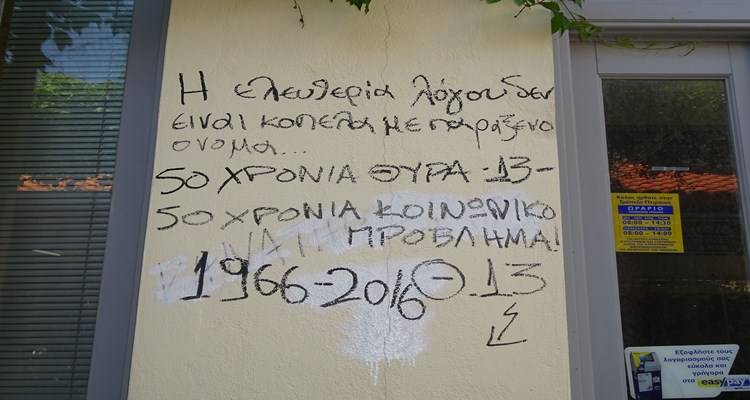 Η ελευθερία λόγου δεν
ειναι κοπελα με παράξενο
ονομα...
50 ΧΡΟΝΙΑ ΘΥΡΑ -13-
50 ΧΡΟΝΙΑ ΚΟΙΝΩΝΙΚΟ
ΠΡΟΒΛΗΜΑ!
1966-2016 Θ.13
ΩΡΑΡΙΟ
08:00 - 14:30
08:00 - 14:00
Εξοφλήστε τους
λογαριασμούς σας
εύκολα και
γρήγορα
στα easypay